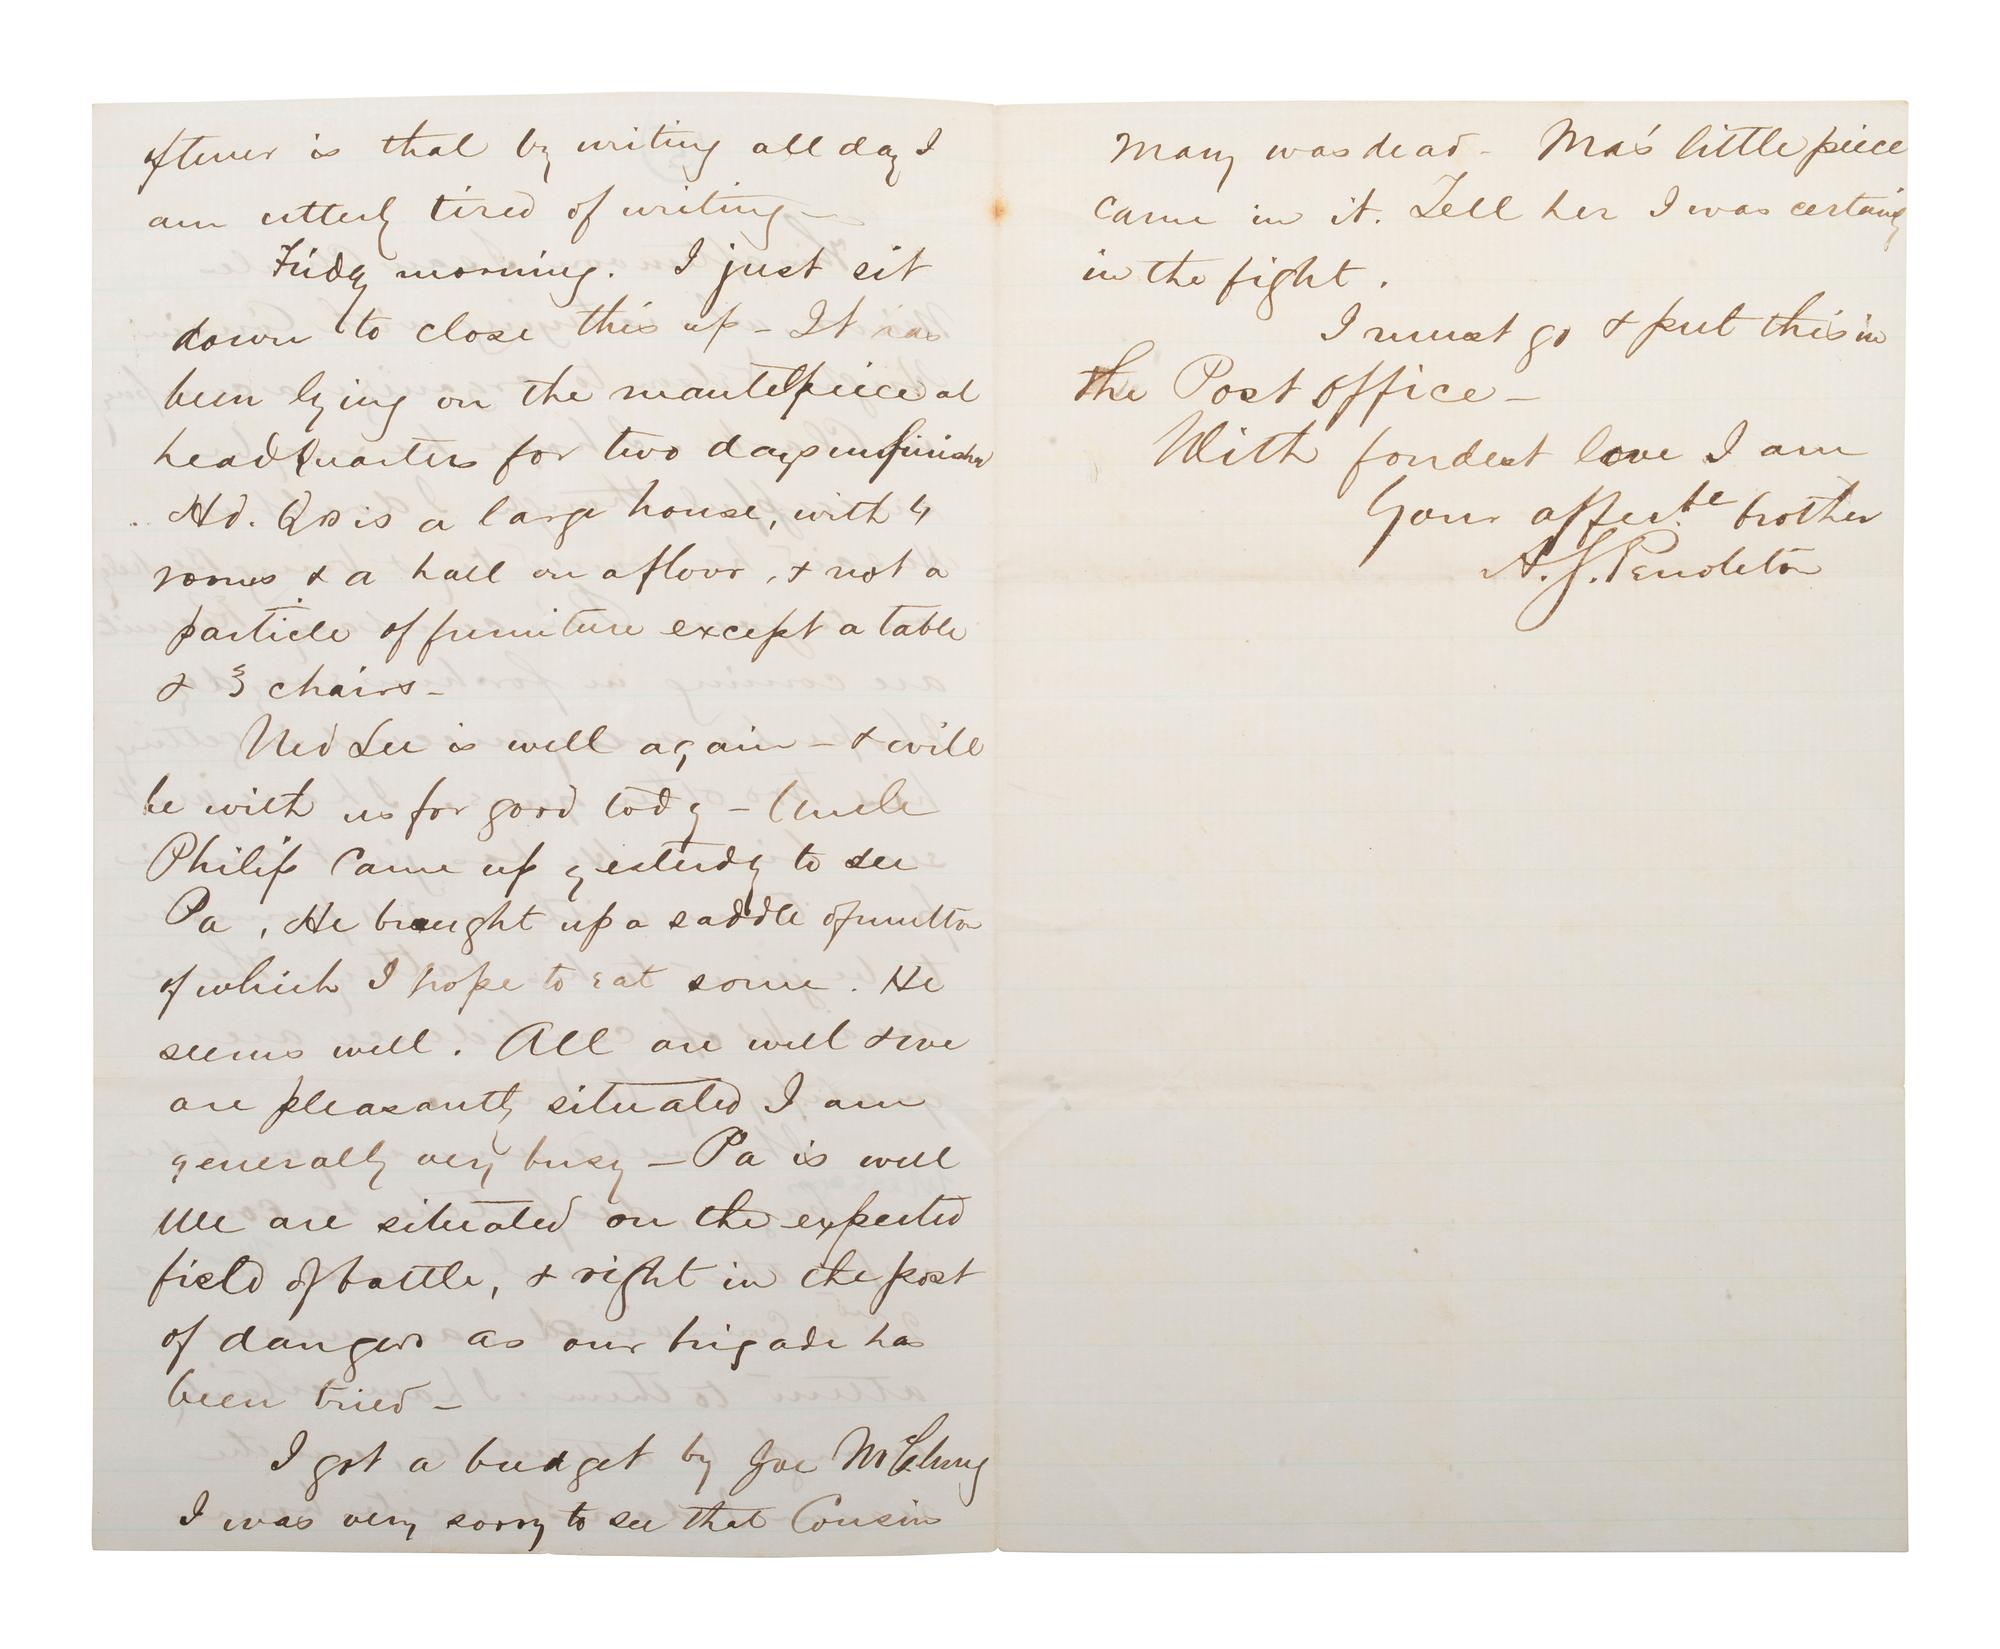 oftener is that by writing all day I
am utterly tired of writing—
Friday morning. I just sit
down to close this up - It has
been lying on the mantelpiece at
headQuarters for two days unfinished
Hd. Qrs is a large house, with 4
rooms & a hall on a floor, & not a
particle of furniture except a table
& 3 chairs-
Ned Lee is well again - & will
be with us for good today - Uncle
Philip came up yesterday to see
Pa, He brought up a saddle of mutton
of which I hope to eat some. He
seems well. All are well & we
are pleasantly situated I am
generally very busy - Pa is well
We are situated on the expected
field of battle, & right in the post
of dangers as our brigade has
been tried-
I got a budget by Joe McClung
I was very sorry to see that Cousin
Mary was dead - Ma's little piece
came in it. Tell her I was certainly
in the fight.
I must go & put this in
the Post office-
With fondest love I am
Your affectte brother
A.S. Pendleton